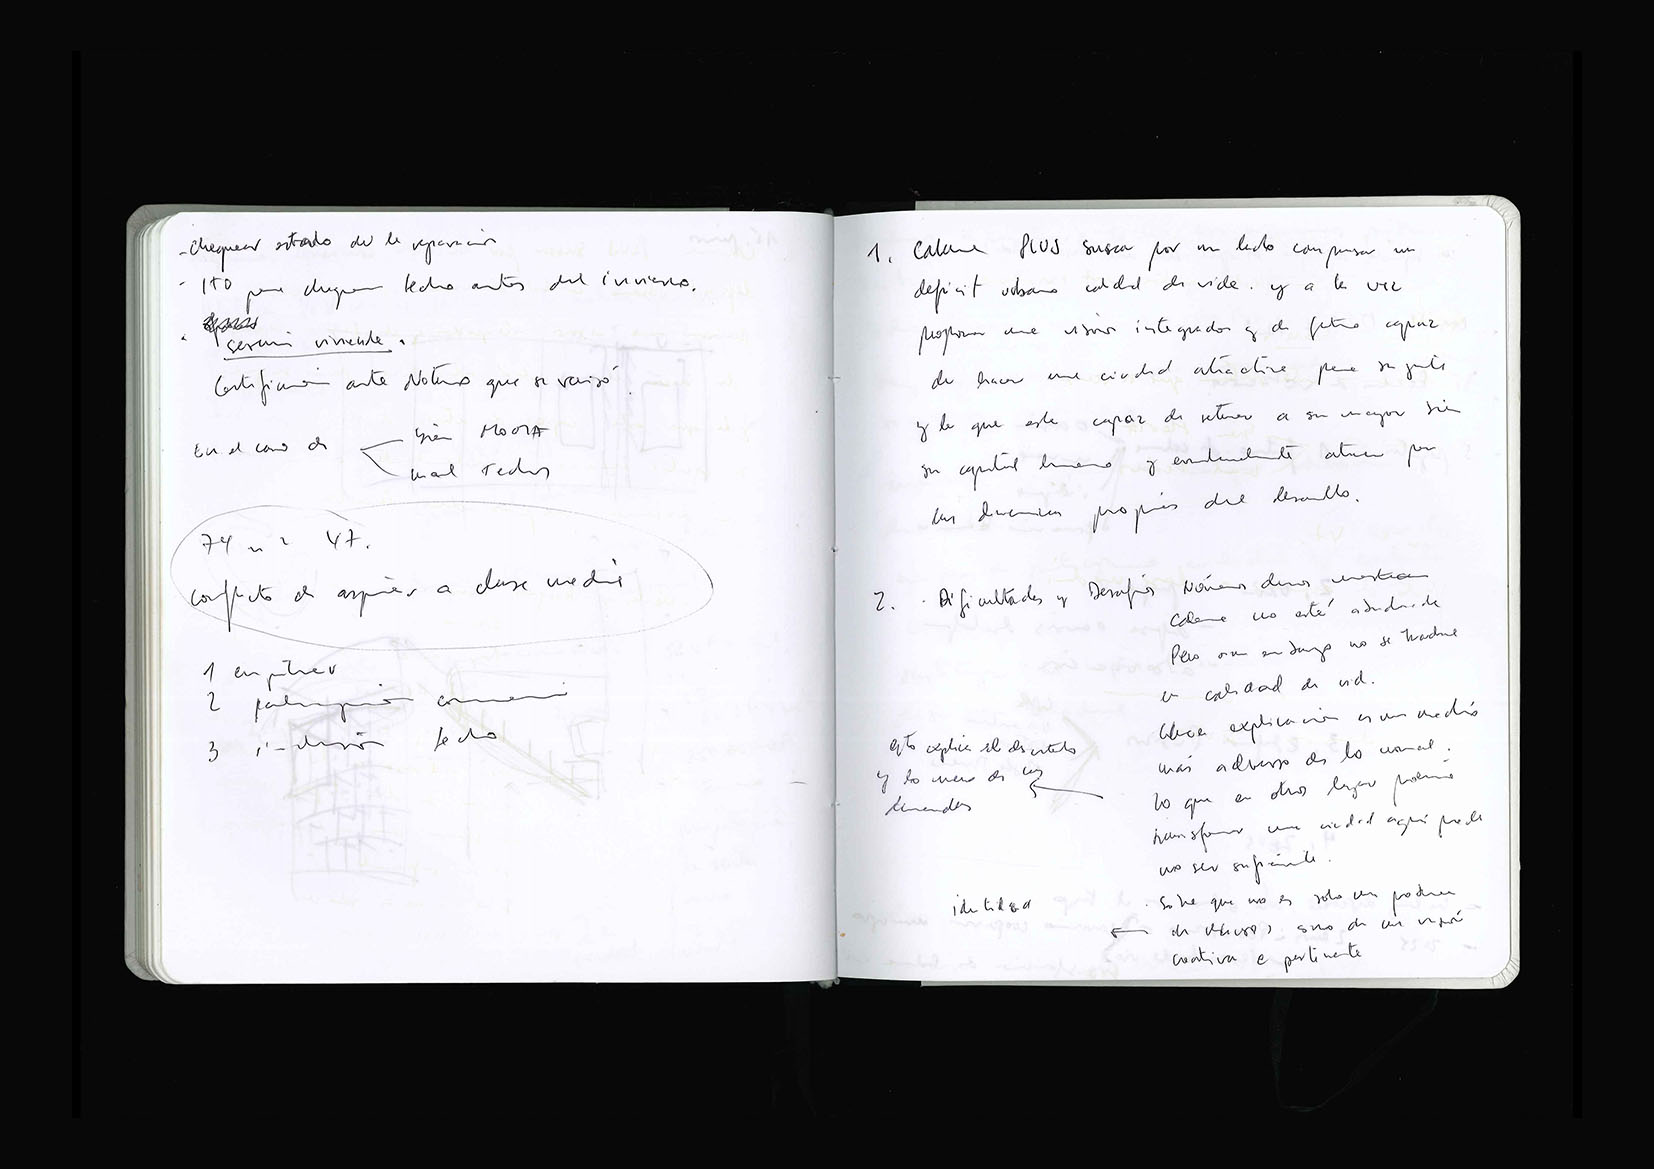 - chequear estado de la reparación
- ITO para chequear techo antes del invierno.
serviu vivienda.
Certificación ante Notario que se revisó.
En el caso de
bien MOOTA
mal Techos
74 m² 47.
conflicto de aspirar a clase media
1 empitar
2
3 techo
1. Calama PLUS busca por un lado compensar un
deficit urbano calidad de vida. y a la vez
proponer una visión integrador y de futuro capaz
de hacer una ciudad atractiva para su gente
y la que este capaz de retener a su mayor bien
su capital humano y eventualmente atraer por
las dinamicas propias del desarrollo.
2. · Dificultades y Desafios
Números duros muestran
Calama no está atrás de
Pero sin embargo no se traduce
en calidad de vida.
Unica explicación es un medio
más adverso de lo normal.
Lo que en otro lugar podría
transformar una ciudad aquí puede
no ser suficiente.
esto explica el descontento
y lo mero de las
demandas
identidad
· Sobre que no es solo un problema
de recursos, sino de una visión
creativa e pertinente